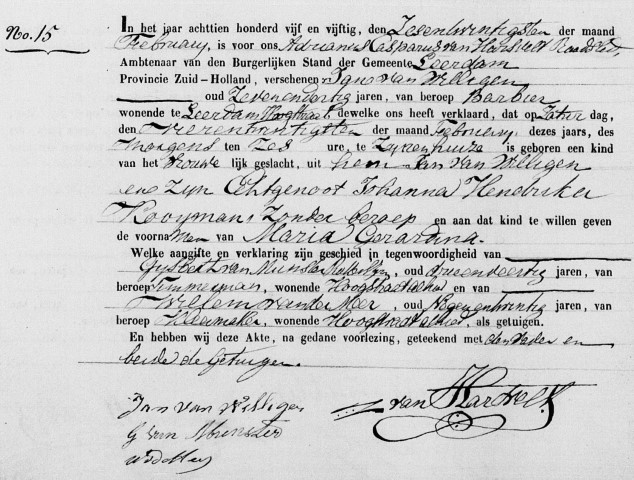 No. 15
In het jaar achttien honderd vijf en vijftig, den Zesentwintigsten der maand
February, is voor ons Adrianus Casparus van Hartevelt Raadslid,
Ambtenaar van den Burgerlijken Stand der Gemeente Leerdam
Provincie Zuid-Holland, verschenen Jan van Willigen
oud Zevenendertig jaren, van beroep Barbier
wonende te Leerdam Hoogstraat dewelke ons heeft verklaard, dat op Zaturdag,
den Vierentwintigsten der maand February dezes jaars, des
Morgens ten Zes ure, te Zynenhuize is geboren een kind
van het Vrouwelijk geslacht, uit hem Jan van Willigen
en Zyn Echtgenoot Johanna Hendrika
Kooymans Zonder beroep en aan dat kind te willen geven
de voornamen van Maria Gerardina.
Welke aangifte en verklaring zijn geschied in tegenwoordigheid van
Gysbert van Munster, oud drieendertig jaren, van
beroep Timmerman, wonende Hoogstraat alhier en van
Willem van der Meer, oud Negenentwintig jaren, van
beroep Kleermaker, wonende Hoogstraat alhier, als getuigen.
En hebben wij deze Akte, na gedane voorlezing, geteekend met den Vader en
beide de Getuigen.
Jan van Willigen
G van Munster
van Hartevelt